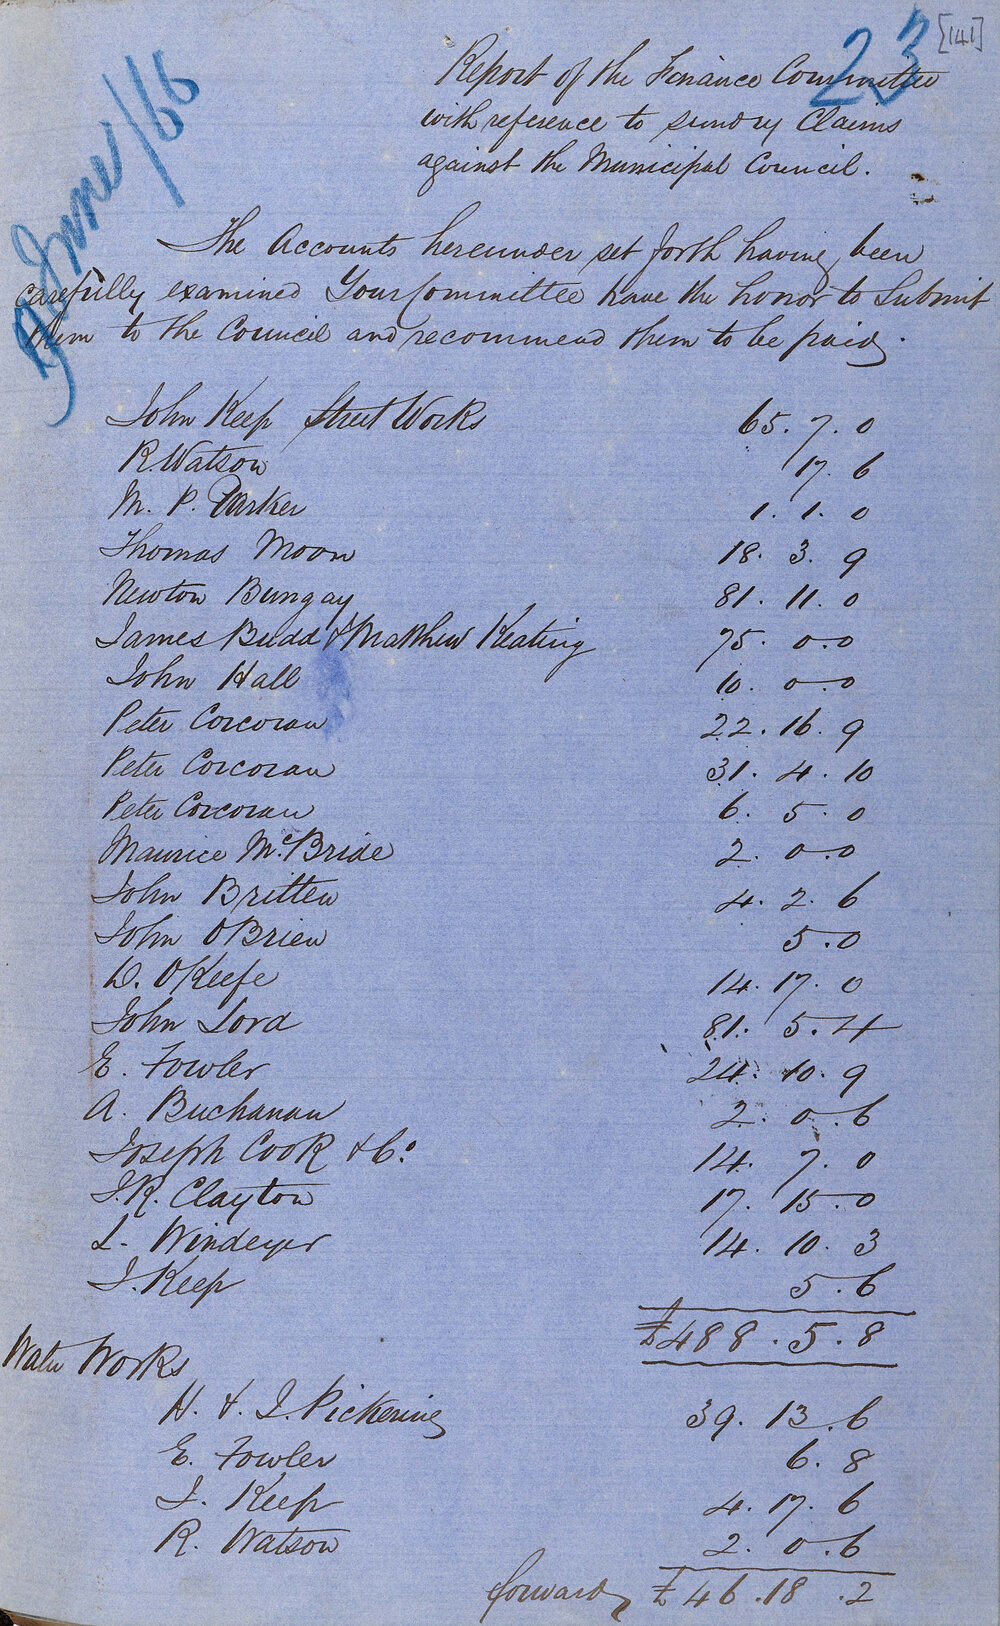 [141]
23
June /66
Report of the Finance Committee
with reference to sundry Claims
against the Municipal Council.
The Accounts hereunder set forth having been
carefully examined Your Committee have the honor to Submit
them to the Council and recommend them to be paid.
John Keep Street Works 65. 7. 0
R. Watson 17. 6
M. P. Parker 1. 1. 0
Thomas Moon 18. 3. 9
Newton Bungay 81. 11. 0
James Budd & Matthew Keating 75. 0. 0
John Hall 10. 0. 0
Peter Corcoran 22. 16. 9
Peter Corcoran 31. 4. 10
Peter Corcoran 6. 5. 0
Maurice McBride 2. 0. 0
John Britten 4. 2. 6
John OBrien 5. 0
D. OKeefe 14. 17. 0
John Lord 81. 5. 4
E. Fowler 24. 10. 9
A. Buchanan 2. 0. 6
Joseph Cook & Co. 14. 7. 0
J. R. Clayton 17. 15. 0
L. Windeyer 14. 10. 3
J. Keep 5. 6
£488. 5. 8
Water Works
H. & J. Pickering 39. 13. 6
E. Fowler 6. 8
J. Keep 4. 17. 6
R. Watson 2. 0. 6
forward £46. 18. 2